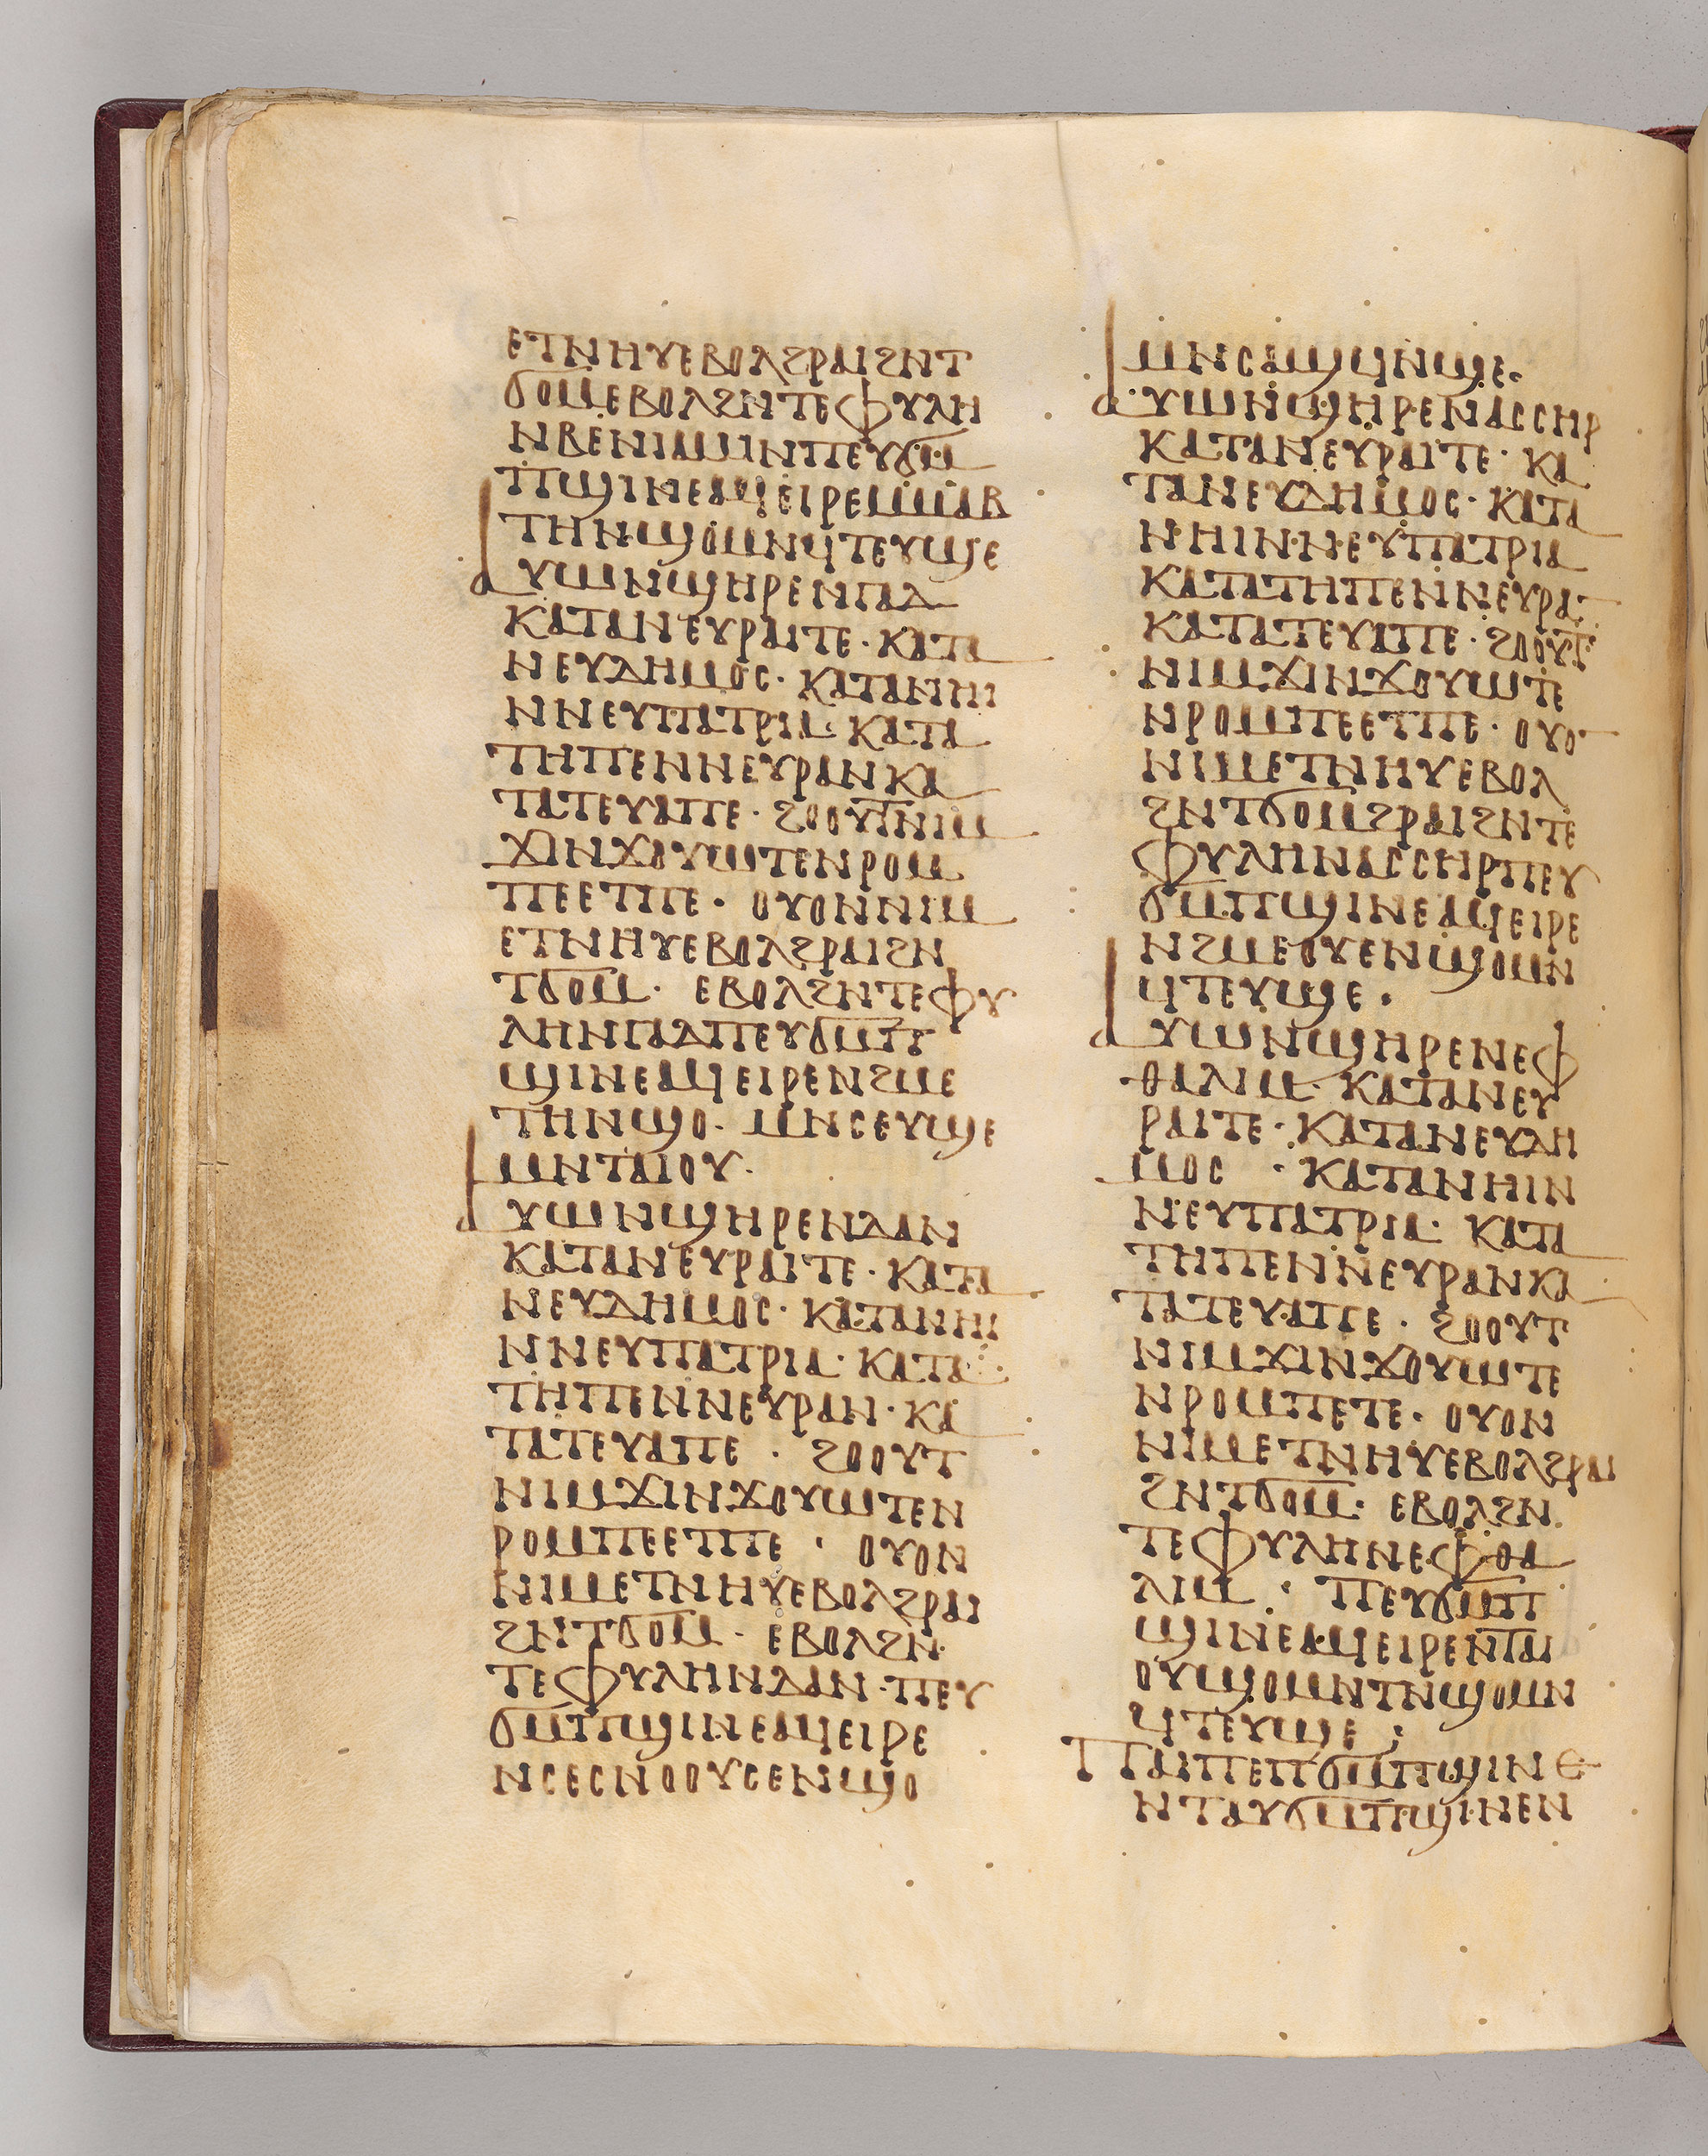 ⲉⲧⲛⲏⲩⲉⲃⲟⲗϩⲣⲁⲓϩⲛⲧ
ϭⲟⲙⲉⲃⲟⲗϩⲛⲧⲉⲫⲩⲗⲏ
ⲛⲃⲉⲛⲓⲁⲙⲓⲛⲡⲉⲩϭⲙ
ⲡϣⲓⲛⲉⲁϥⲉⲓⲣⲉⲙⲙⲁⲃ
ⲧⲏⲛϣⲟⲙⲛϥⲧⲉⲩϣⲉ
ⲁⲩⲱⲛϣⲏⲣⲉⲛⲅⲁⲇ
ⲕⲁⲧⲁⲛⲉⲩⲣⲁⲓⲧⲉ· ⲕⲁⲧⲁ
ⲛⲉⲩⲇⲏⲙⲟⲥ· ⲕⲁⲧⲁⲛⲏⲓ
ⲛⲛⲉⲩⲡⲁⲧⲣⲓⲁ· ⲕⲁⲧⲁ
ⲧⲏⲡⲉⲛⲛⲉⲩⲣⲁⲛⲕⲁ
ⲧⲁⲧⲉⲩⲁⲡⲉ· ϩⲟⲟⲩⲧⲛⲓⲙ
ϫⲓⲛϫⲟⲩⲱⲧⲉⲛⲣⲟⲙ
ⲡⲉⲉⲧⲡⲉ· ⲟⲩⲟⲛⲛⲓⲙ
ⲉⲧⲛⲏⲩⲉⲃⲟⲗϩⲣⲁⲓϩⲛ
ⲧϭⲟⲙ· ⲉⲃⲟⲗϩⲛⲧⲉⲫⲩ
ⲗⲏⲛⲅⲁⲇⲡⲉⲩϭⲙⲡ
ϣⲓⲛⲉⲁϥⲉⲓⲣⲉⲛϩⲙⲉ
ⲧⲏⲛϣⲟ· ⲙⲛⲥⲉⲩϣⲉ
ⲙⲛⲧⲁⲓⲟⲩ·
ⲁⲩⲱⲛϣⲏⲣⲉⲛⲇⲁⲛ
ⲕⲁⲧⲁⲛⲉⲩⲣⲁⲓⲧⲉ· ⲕⲁⲧⲁ
ⲛⲉⲩⲇⲏⲙⲟⲥ· ⲕⲁⲧⲁⲛⲏⲓ
ⲛⲛⲉⲩⲡⲁⲧⲣⲓⲁ· ⲕⲁⲧⲁ
ⲧⲏⲡⲉⲛⲛⲉⲩⲣⲁⲛ· ⲕⲁ
ⲧⲁⲧⲉⲩⲁⲡⲉ· ϩⲟⲟⲩⲧ
ⲛⲓⲙϫⲓⲛϫⲟⲩⲱⲧⲉⲛ
ⲣⲟⲙⲡⲉⲉⲧⲡⲉ· ⲟⲩⲟⲛ
ⲛⲓⲙⲉⲧⲛⲏⲩⲉⲃⲟⲗϩⲣⲁⲓ
ϩⲛⲧϭⲟⲙ· ⲉⲃⲟⲗϩⲛ
ⲧⲉⲫⲩⲗⲏⲛⲇⲁⲛ· ⲡⲉⲩ
ϭⲙⲡϣⲓⲛⲉⲁϥⲉⲓⲣⲉ
ⲛⲥⲉⲥⲛⲟⲟⲩⲥⲉⲛϣⲟ
ⲙⲛⲥⲁϣϥⲛϣⲉ·
ⲁⲩⲱⲛϣⲏⲣⲉⲛⲁⲥⲥⲏⲣ
ⲕⲁⲧⲁⲛⲉⲩⲣⲁⲓⲧⲉ· ⲕⲁ
ⲧⲁⲛⲉⲩⲇⲏⲙⲟⲥ· ⲕⲁⲧⲁ
ⲛⲏⲓⲛⲛⲉⲩⲡⲁⲧⲣⲓⲁ
ⲕⲁⲧⲁⲧⲏⲡⲉⲛⲛⲉⲩⲣⲁ̄
ⲕⲁⲧⲁⲧⲉⲩⲁⲡⲉ· ϩⲟⲟⲩⲧ
ⲛⲓⲙϫⲓⲛϫⲟⲩⲱⲧⲉ
ⲛⲣⲟⲙⲡⲉⲉⲧⲡⲉ· ⲟⲩⲟ̄
ⲛⲓⲙⲉⲧⲛⲏⲩⲉⲃⲟⲗ
ϩⲛⲧϭⲟⲙϩⲣⲁⲓϩⲛⲧⲉ
ⲫⲩⲗⲏⲛⲁⲥⲥⲏⲣⲡⲉⲩ
ϭⲙⲡϣⲓⲛⲉⲁϥⲉⲓⲣⲉ
ⲛϩⲙⲉⲟⲩⲉⲛϣⲟⲙⲛ
ϥⲧⲉⲩϣⲉ·
ⲁⲩⲱⲛϣⲏⲣⲉⲛⲉⲫ
ⲑⲁⲗⲓⲙ· ⲕⲁⲧⲁⲛⲉⲩ
ⲣⲁⲓⲧⲉ· ⲕⲁⲧⲁⲛⲉⲩⲇⲏ
ⲙⲟⲥ· ⲕⲁⲧⲁⲛⲏⲓⲛ
ⲛⲉⲩⲡⲁⲧⲣⲓⲁ· ⲕⲁⲧⲁ
ⲧⲏⲡⲉⲛⲛⲉⲩⲣⲁⲛⲕⲁ
ⲧⲁⲧⲉⲩⲁⲡⲉ· ϩⲟⲟⲩⲧ
ⲛⲓⲙϫⲓⲛϫⲟⲩⲱⲧⲉ
ⲛⲣⲟⲙⲡⲉⲧⲉ· ⲟⲩⲟⲛ
ⲛⲓⲙⲉⲧⲛⲏⲩⲉⲃⲟⲗϩⲣⲁⲓ
ϩⲛⲧϭⲟⲙ· ⲉⲃⲟⲗϩⲛ
ⲧⲉⲫⲩⲗⲏⲛⲉⲫⲑⲁ
ⲗⲓⲙ· ⲡⲉⲩϭⲙⲡ
ϣⲓⲛⲉⲁϥⲉⲓⲣⲉⲛⲧⲁⲓ
ⲟⲩϣⲟⲙⲛⲧⲛϣⲟⲙⲛ
ϥⲧⲉⲩϣⲉ:
ⲡⲁⲓⲡⲉⲡϭⲙⲡϣⲓⲛⲉ
ⲛⲧⲁⲩϭⲙⲡϣⲓⲛⲉⲛ